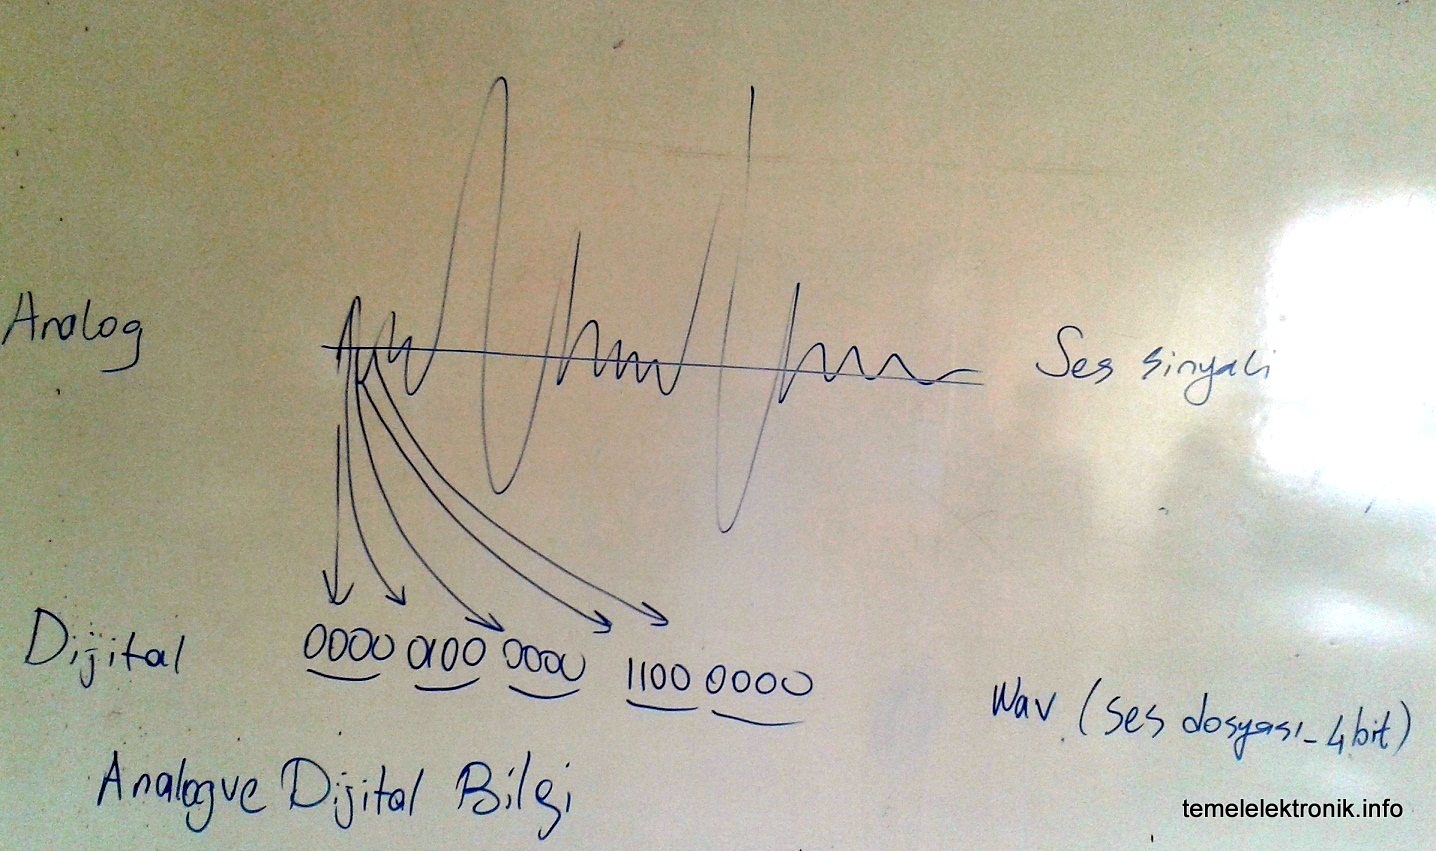 Analog
Ses sinyali
Dijital
0000 0100 0000 1100 0000
Wav (Ses dosyası_4bit)
Analog ve Dijital Bilgi
temelelektronik.info